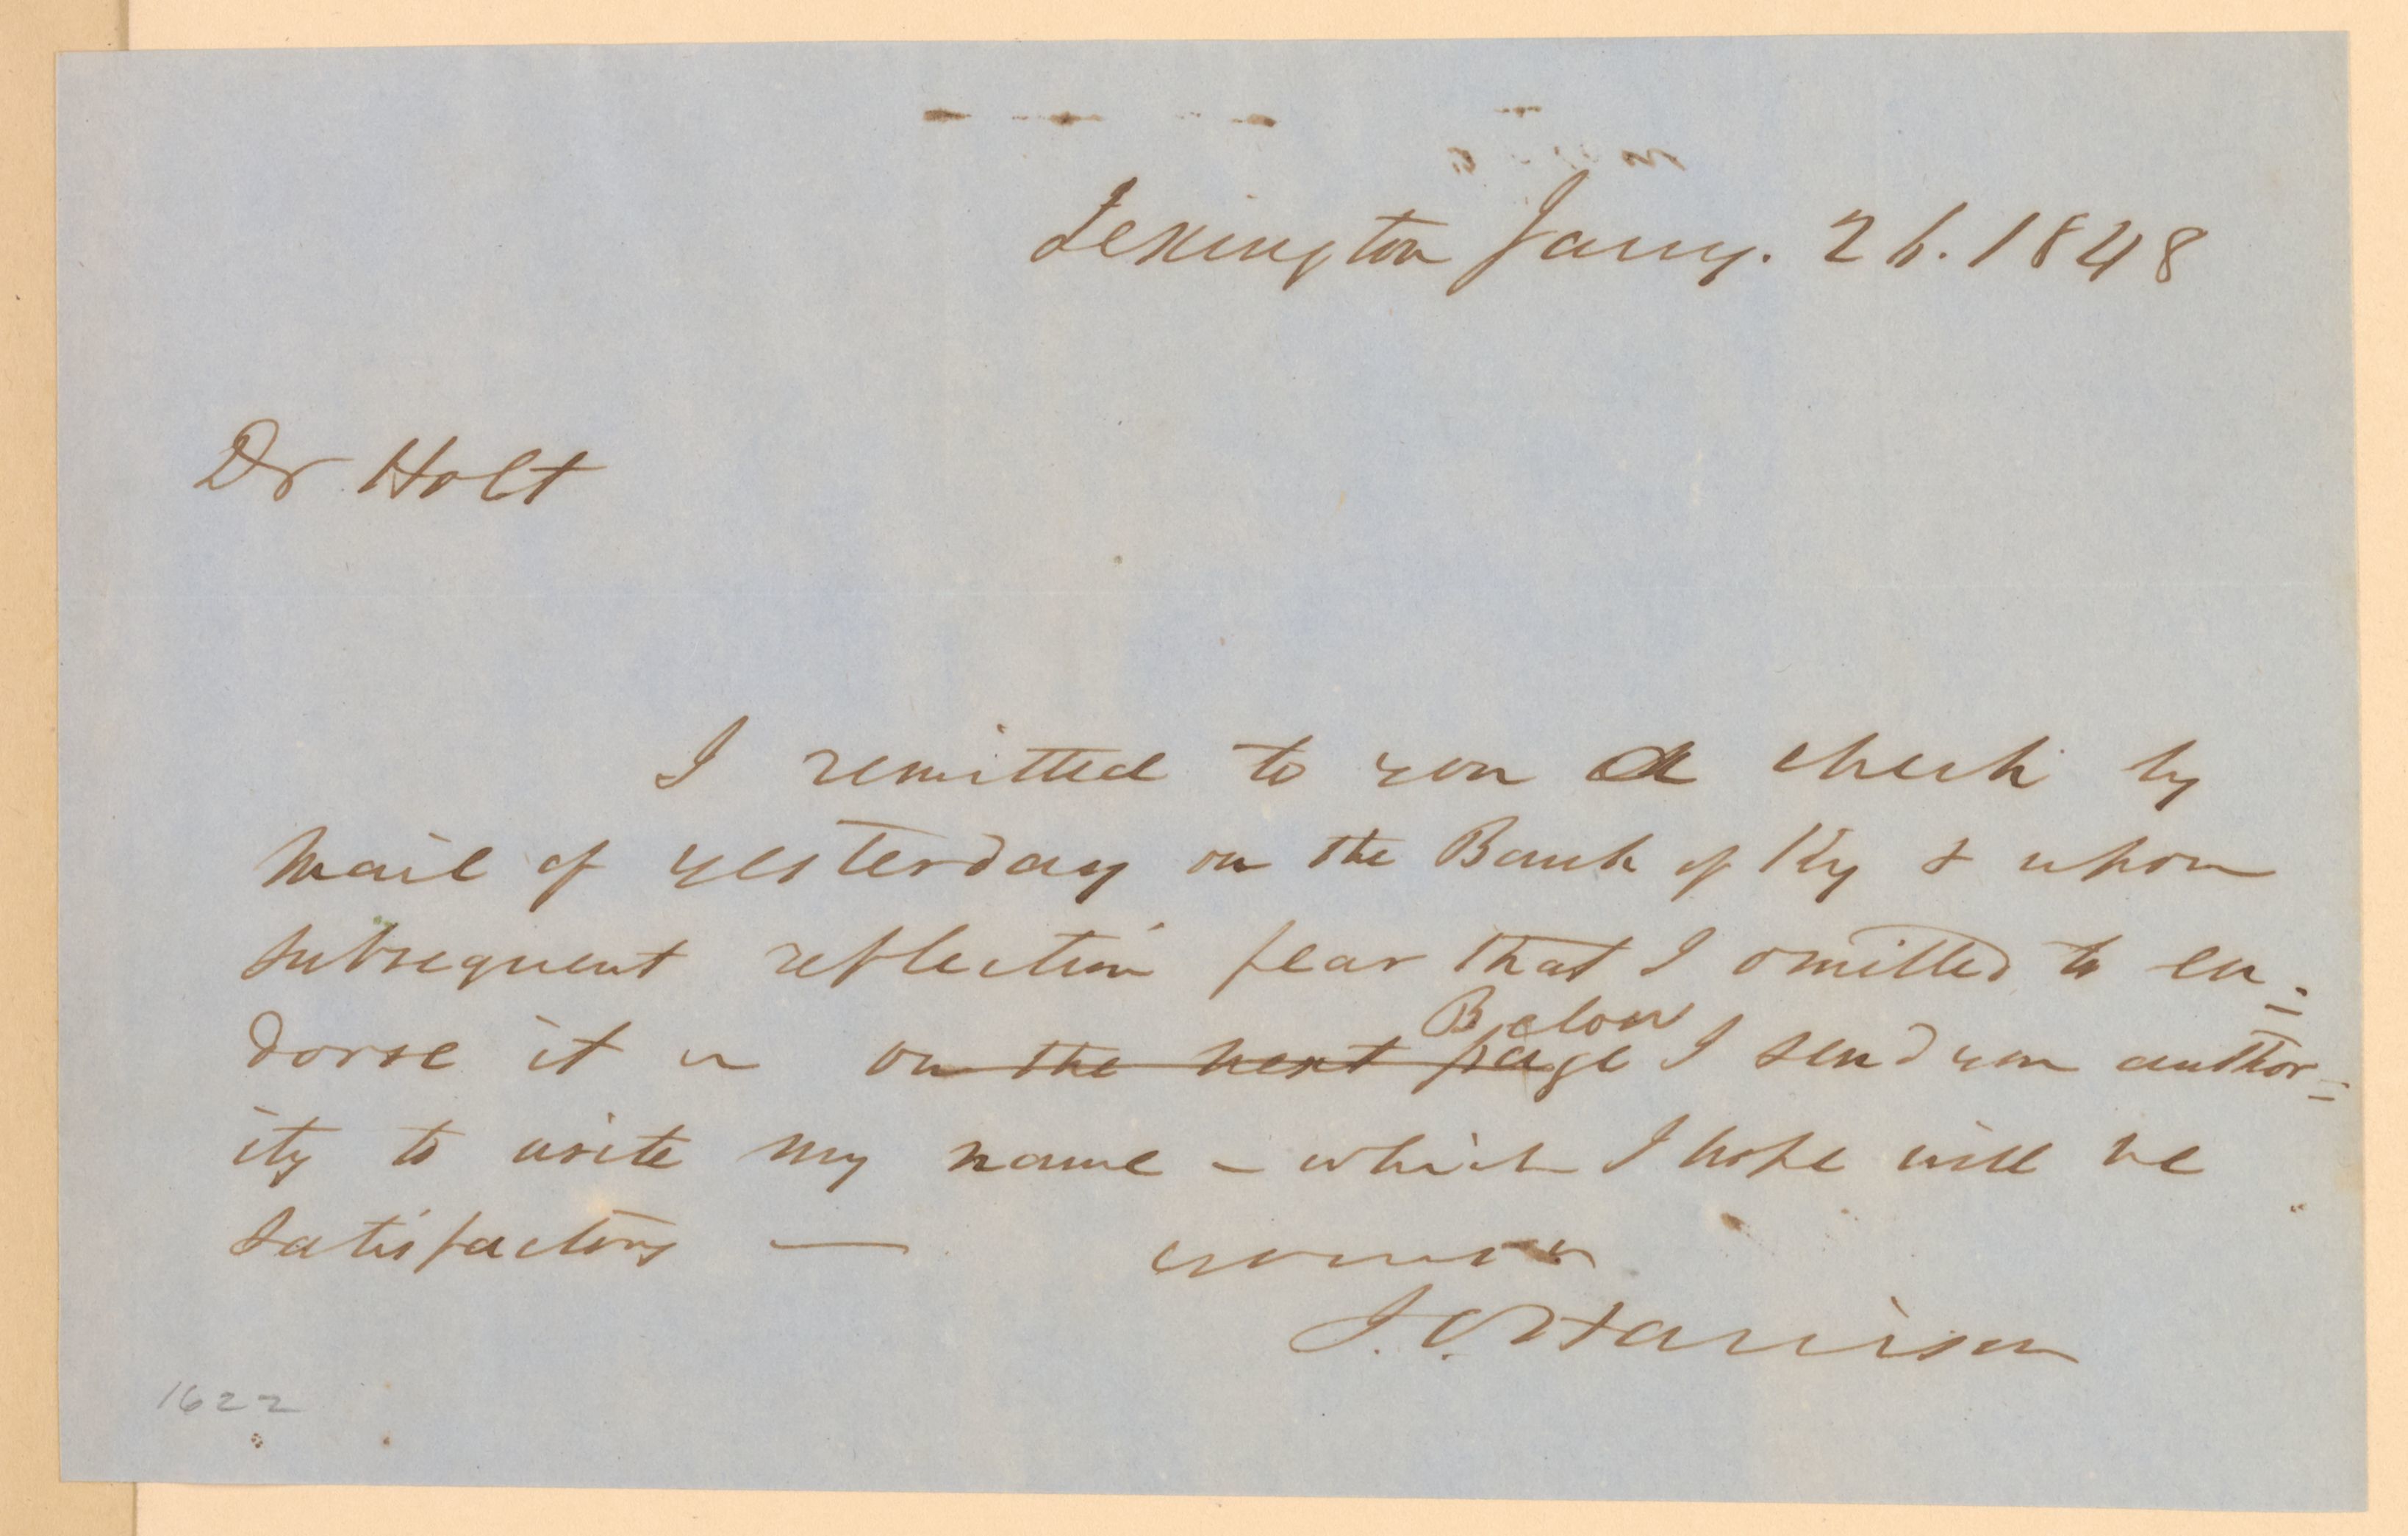 Lexington Jany. 26. 1848
Dr Holt
I remitted to you a check by
mail of yesterday on the Bank of Ky & upon
subsequent reflection fear that I omitted to en=
Below
dorse it on the next page I send you author=
ity to write my name - which I hope will be
satisfactory —
J. O. Harrison
1622